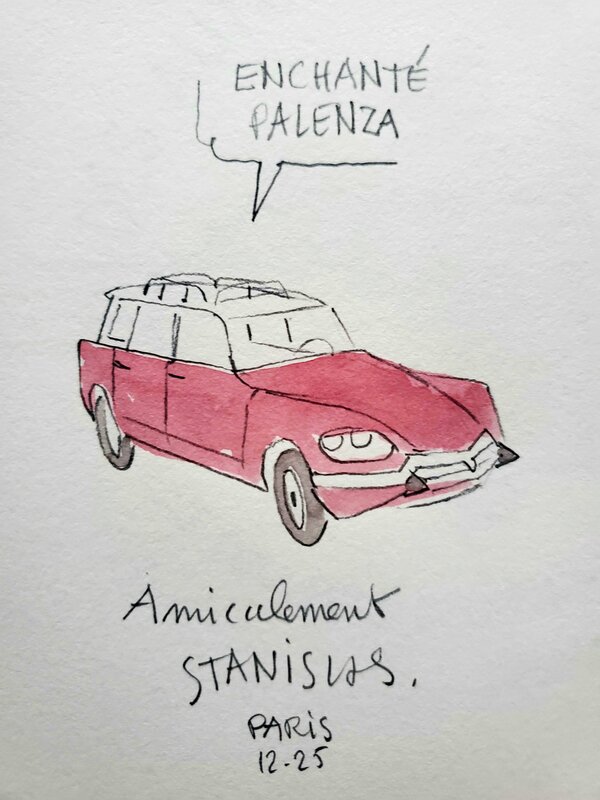 ENCHANTÉ
PALENZA
Amicalement
STANISLAS.
PARIS
12-25